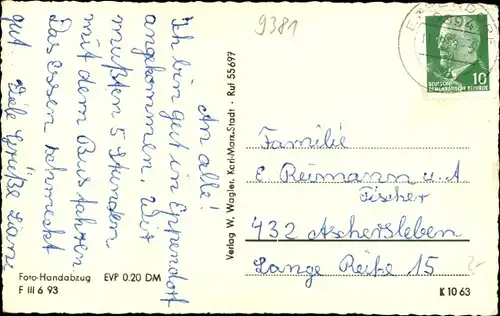 An alle!
Ich bin gut in Eppendorf
angekommen. Wir
mußten 5 Stunden
mit dem Bus fahren.
Das Essen schmeckt
gut. Viele Grüße Liane
Foto-Handabzug EVP 0.20 DM
F III 6 93
Verlag W. Wagler, Karl-Marx-Stadt · Ruf 55697
9381
10
DEUTSCHE
DEMOKRATISCHE REPUBLIK
Familie
E. Reimann u. A
Fischer
432 Aschersleben
Lange Reihe 15
2,-
K 10 63